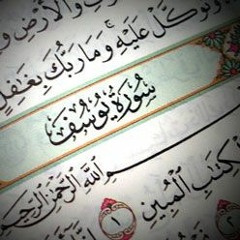 وَالْأَرْضِ
وَتَوَكَّلْ عَلَيْهِ ۚ وَمَا رَبُّكَ بِغَٰفِلٍ
سُورَةُ يُوسُفَ
بِسْمِ اللَّهِ الرَّحْمَٰنِ الرَّحِيمِ
الْكِتَٰبِ الْمُبِينِ ١
٢